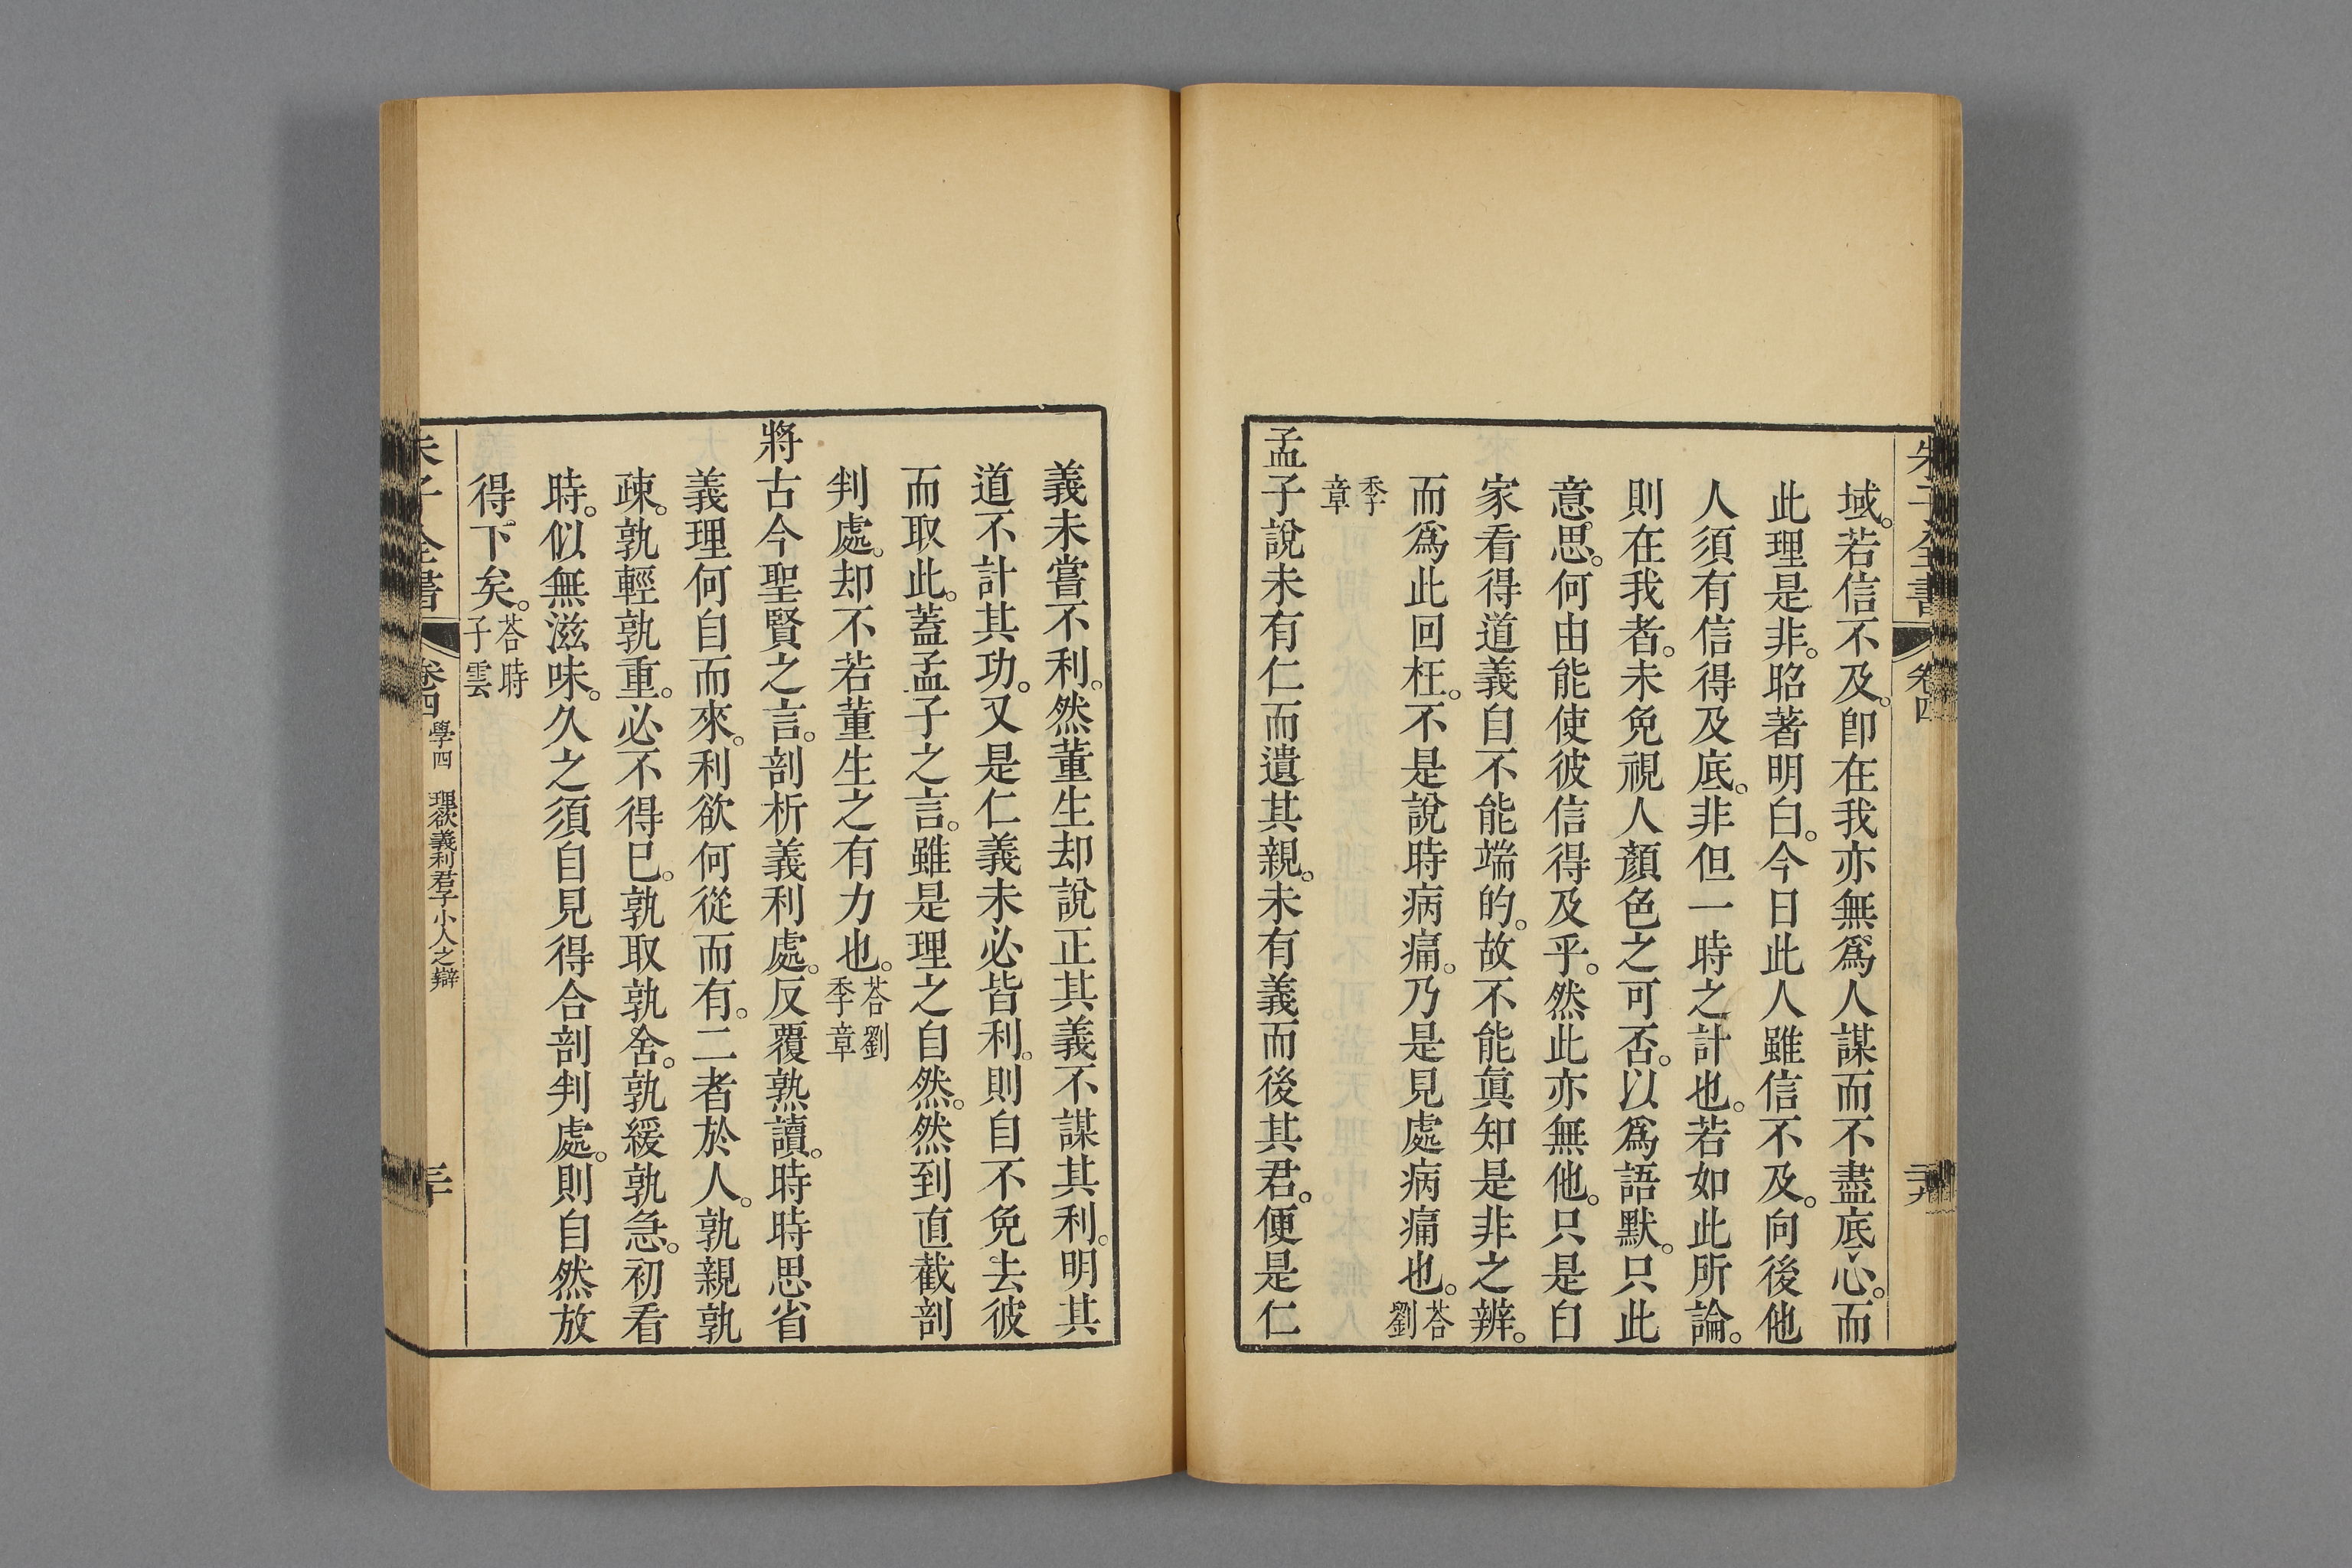 朱子全書 卷四 二十九
域。若信不及。卽在我亦無爲人謀而不盡底心。而
此理是非。昭著明白。今日此人雖信不及。向後他
人須有信得及底。非但一時之計也。若如此所論。
則在我者。未免視人顏色之可否。以爲語默。只此
意思。何由能使彼信得及乎。然此亦無他。只是自
家看得道義自不能端的。故不能眞知是非之辨。
而爲此回枉。不是說時病痛。乃是見處病痛也。荅劉
季章
孟子說未有仁而遺其親。未有義而後其君。便是仁
義未嘗不利。然董生却說正其義不謀其利。明其
道不計其功。又是仁義未必皆利。則自不免去彼
而取此。蓋孟子之言。雖是理之自然。然到直截剖
判處。却不若董生之有力也。荅劉季章
將古今聖賢之言。剖析義利處。反覆熟讀。時時思省
義理何自而來。利欲何從而有。二者於人。孰親孰
疎。孰輕孰重。必不得已。孰取孰舍。孰緩孰急。初看
時。似無滋味。久之須自見得合剖判處。則自然放
得下矣。荅時子雲
朱子全書 卷四 學四 理欲義利君子小人之辯 三十